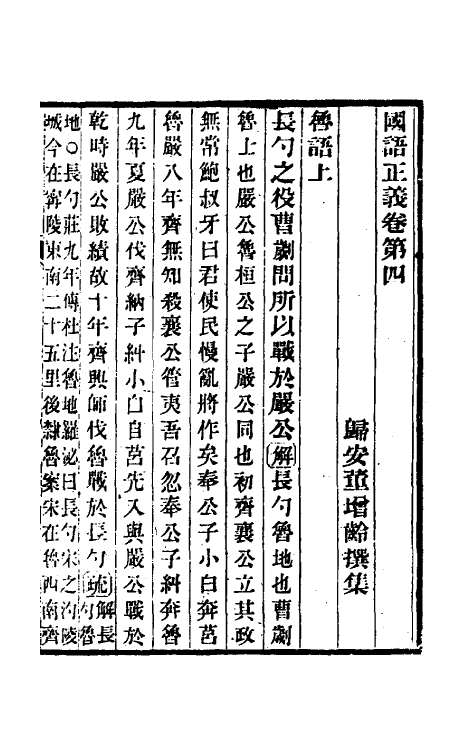 國語正義卷第四
歸安董增齡撰集
魯語上
長勺之役曹劌問所以戰於嚴公解長勺魯地也曹劌
魯士也嚴公魯桓公之子嚴公同也初齊襄公立其政
無常鮑叔牙曰君使民慢亂將作矣奉公子小白奔莒
魯嚴八年齊無知殺襄公管夷吾召忽奉公子糾奔魯
九年夏嚴公伐齊納子糾小白自莒先入與嚴公戰於
乾時嚴公敗績故十年齊興師伐魯戰於長勺疏解長
勺魯
地○長勺莊九年傳杜注魯地羅泌曰長勺宋之沟陵
城今在寧陵東南二十五里後隸魯案宋在魯西南齊